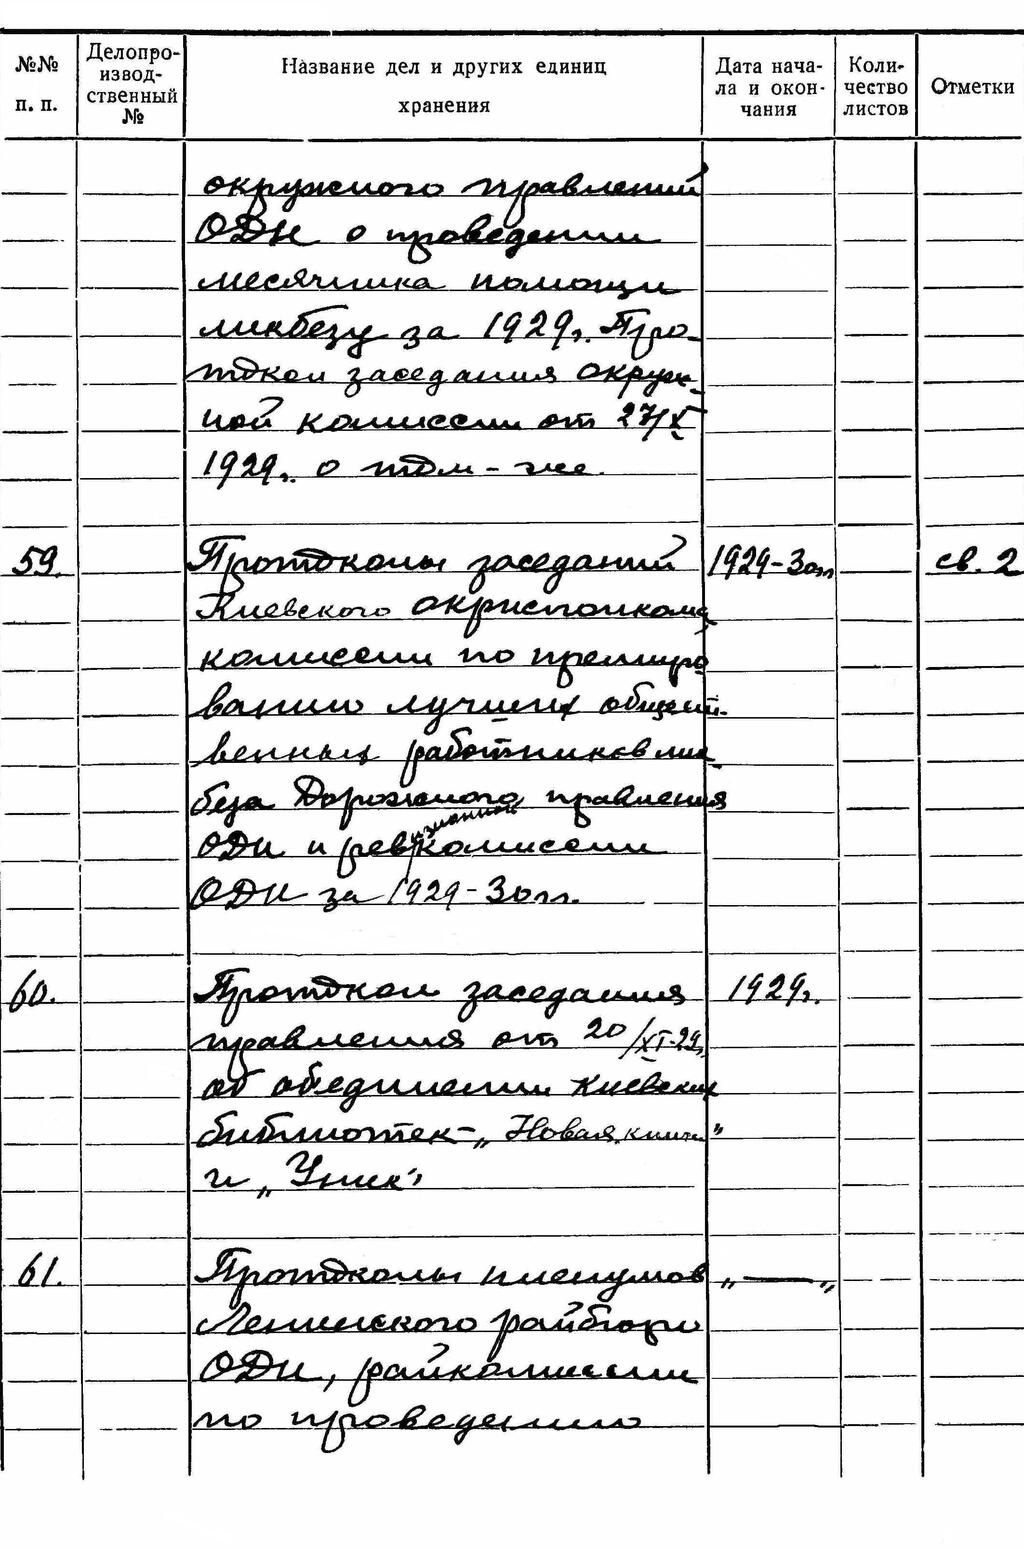 №№ п. п.
Делопро-
извод-
ственный
№
Название дел и других единиц
хранения
Дата нача-
ла и окон-
чания
Коли-
чество
листов
Отметки
окружного правлений
ОДН о проведении
месячника помощи
ликбезу за 1929г. Про-
токол заседания окруж-
ной комиссии от 27/X
1929г. о том-же.
59. Протоколы заседаний 1929-30гг св. 2
Киевского окрисполкома
комиссии по премиро
ванию лучших общест-
венных работников лик-
беза Дорожного правления
ОДН и ревизионной комиссии
ОДН за 1929-30гг.
60. Протокол заседания 1929г.
правления от 20/XI-29г.
об обединении киевских
библиотек-„Новая книга"
и „Униск"
61. Протоколы пленумов „ — „
Ленинского райбюро
ОДН, райкомиссии
по проведению